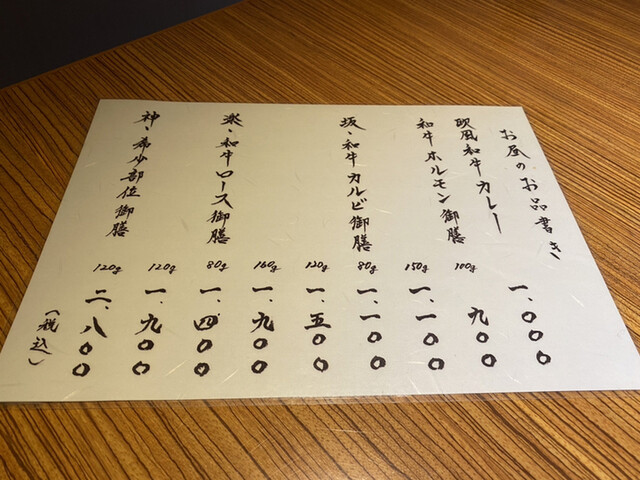 お昼のお品書き
欧風和牛カレー 一、〇〇〇
和牛ホルモン御膳 100g 九〇〇
150g 一、一〇〇
坂、和牛カルビ御膳 80g 一、一〇〇
120g 一、五〇〇
160g 一、九〇〇
楽、和牛ロース御膳 80g 一、四〇〇
120g 一、九〇〇
神、希少部位御膳 120g 二、八〇〇
(税込)